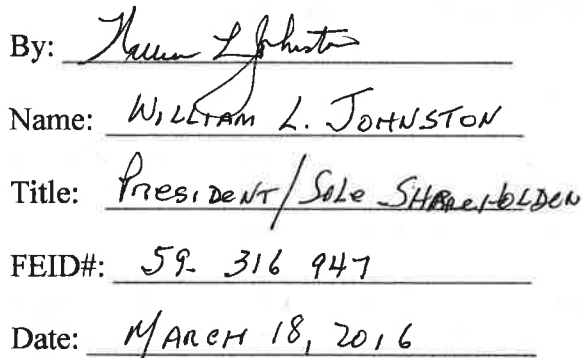 By: William L Johnston
Name: WILLIAM L. JOHNSTON
Title: PRESIDENT/SOLE SHAREHOLDER
FEID#: 59- 316 947
Date: MARCH 18, 2016